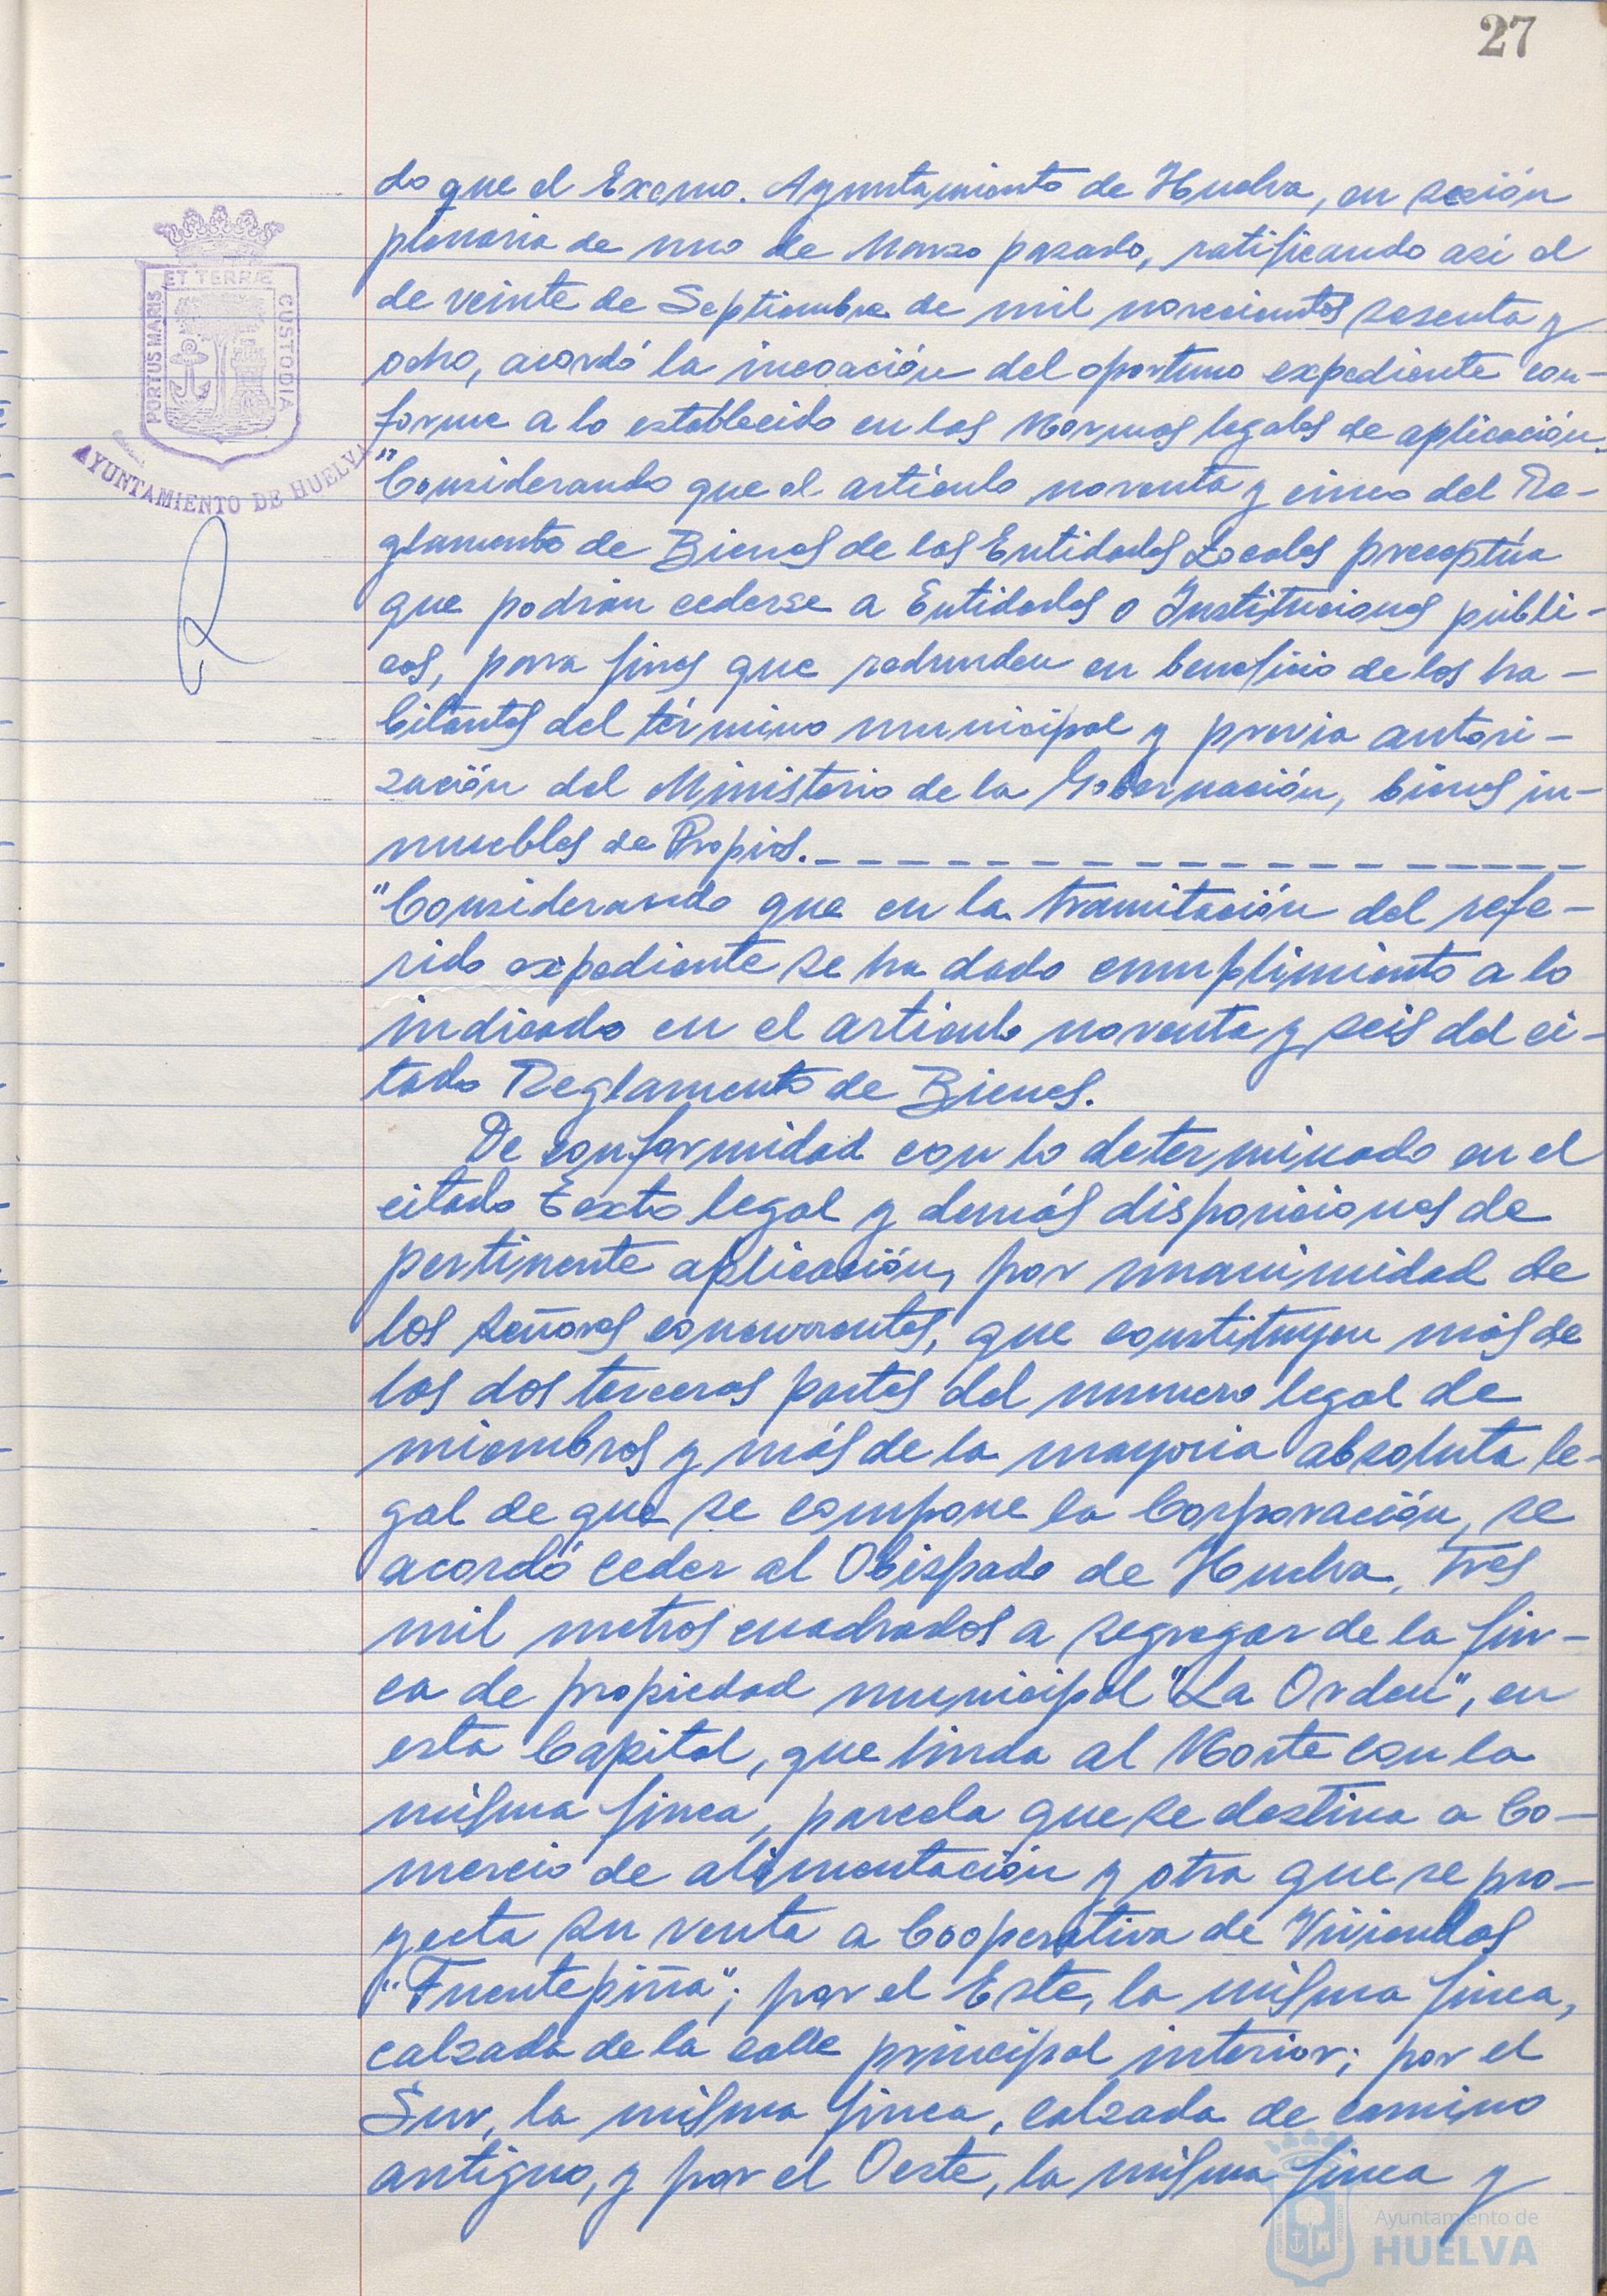 27
do que el Excmo. Ayuntamiento de Huelva, en sesión
plenaria de uno de Marzo pasado, ratificando asi el
de veinte de Septiembre de mil novecientos sesenta y
ocho, acordó la incoación del oportuno expediente con-
forme a lo establecido en las Normas legales de aplicación.
"Considerando que el artículo noventa y cinco del Re-
glamento de Bienes de las Entidades Locales preceptúa
que podrán cederse a Entidades o Instituciones públi-
cas, para fines que redunden en beneficio de los ha-
bitantes del término municipal y previa autori-
zación del Ministerio de la Gobernación, bienes in-
muebles de Propios.
"Considerando que en la tramitación del refe-
rido expediente se ha dado cumplimiento a lo
indicado en el articulo noventa y seis del ci-
tado Reglamento de Bienes.
De conformidad con lo determinado en el
citado Texto legal y demás disposiciones de
pertinente aplicación, por unanimidad de
los señores concurrentes, que constituyen más de
las dos terceras partes del numero legal de
miembros y más de la mayoria absoluta le-
gal de que se compone la Corporación, se
acordó ceder al Obispado de Huelva, tres
mil metros cuadrados a segregar de la fin-
ca de propiedad municipal "La Orden", en
esta Capital, que linda al Norte con la
misma finca, parcela que se destina a Co-
mercio de alimentación y otra que se pro-
yecta su venta a Cooperativa de Viviendas
"Fuentepiña"; por el Este, la misma finca,
calzada de la calle principal interior; por el
Sur, la misma finca, calzada de camino
antiguo, y por el Oeste, la misma finca y
PORTUS MARIS
ET TERRÆ
CUSTODIA
AYUNTAMIENTO DE HUELVA
Ayuntamiento de
HUELVA